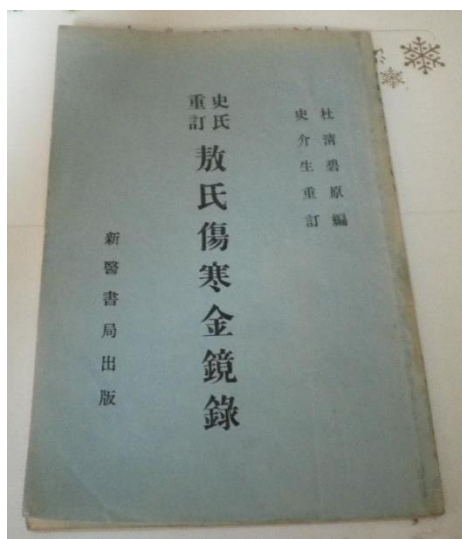 杜清碧原編
史介生重訂
史氏重訂敖氏傷寒金鏡錄
新醫書局出版